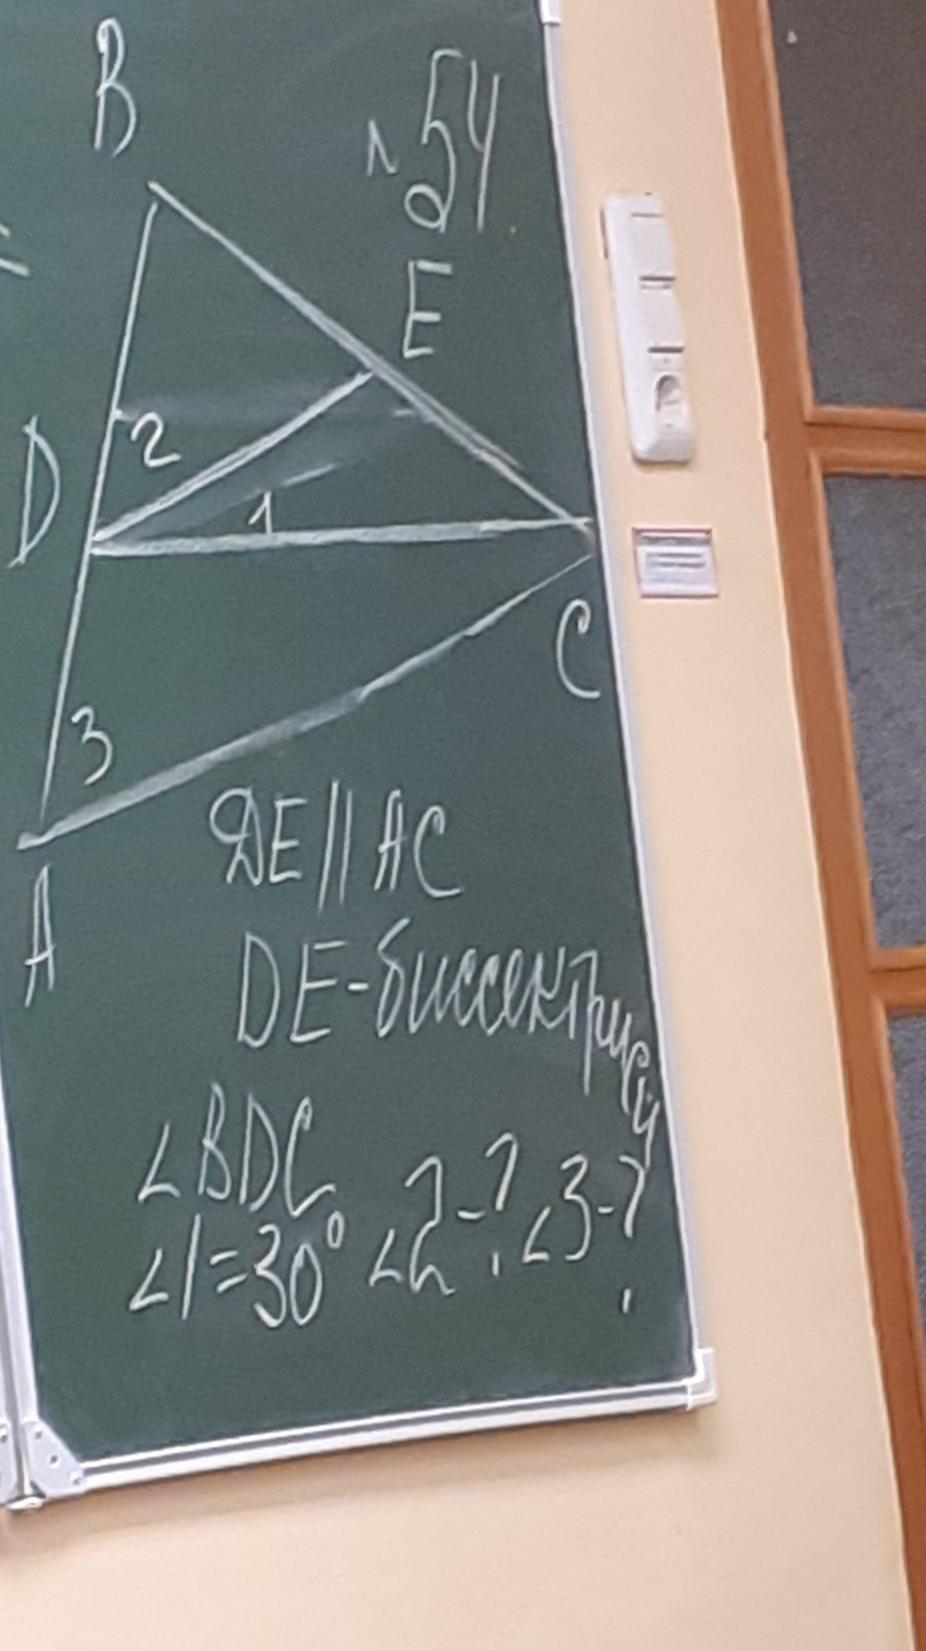 B
№54
E
D
2
1
C
3
A
DE || AC
DE-биссектриса
∠BDC
∠1=30° ∠2-? ∠3-?